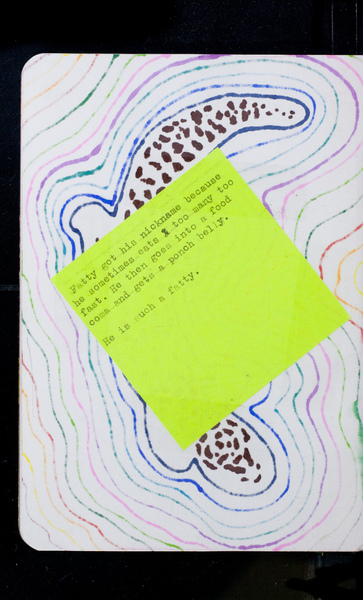 Fatty got his nickname because
he sometimes eats too many too
fast. He then goes into a food
coma and gets a ponch belly.
He is such a fatty.